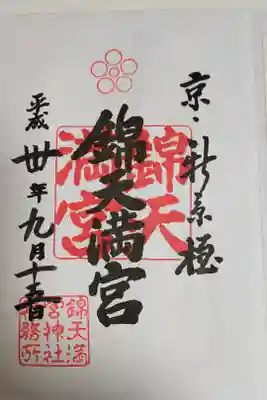 京・新京極
錦天満宮
平成卅年九月十三日
錦天
満宮
錦天満
宮神社
社務所